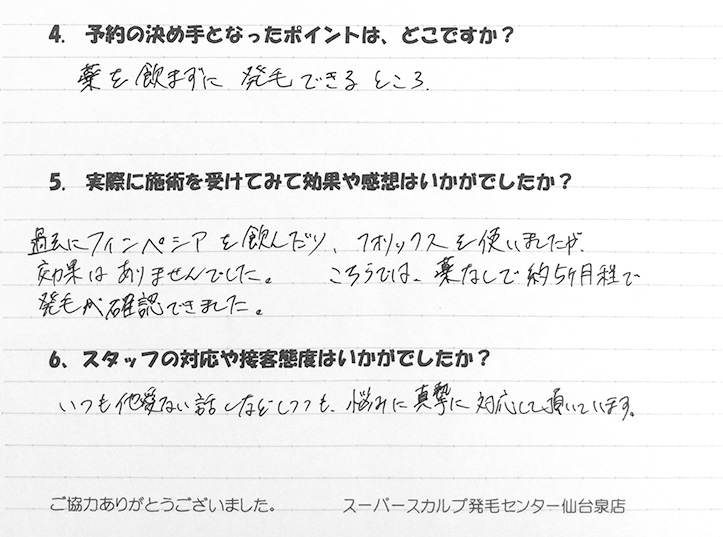 4. 予約の決め手となったポイントは、どこですか？
薬を飲まずに発毛できるところ.
5. 実際に施術を受けてみて効果や感想はいかがでしたか？
過去にフィンペシアを飲んだり、フォリックスを使いましたが、
効果はありませんでした。 こちらでは、薬なしで約5ヶ月程で
発毛が確認できました。
6、スタッフの対応や接客態度はいかがでしたか？
いつも他愛ない話しなどしつつも、悩みに真摯に対応して頂いています。
ご協力ありがとうございました。 スーパースカルプ発毛センター仙台泉店